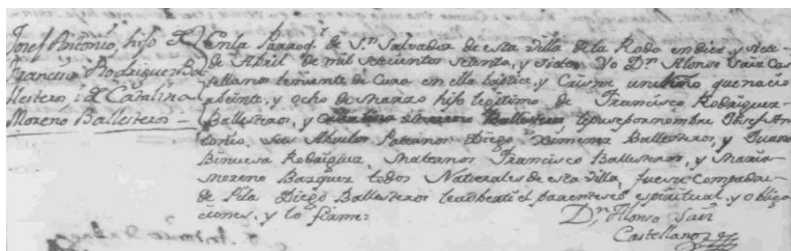 Josef Antonio, hijo de
Francisco Rodriguez Ba
llesteros i de Catalina
Moreno Ballesteros =
En la Parroql. de Sn. Salvador de esta Villa de la Roda en diez, y siete
de Abril de mil setecientos setenta, y siete. Yo Dn. Alonso Saiz Cas
tellanos teniente de Cura en ella baptize, y Crisme un niño que nacio
a beinte, y ocho de Marzo hijo legitimo de Francisco Rodriguez
Ballesteros, y Catalina Moreno Ballesteros, le puse por nombre Josef An
tonio. Sus Abuelos Paternos Diego Ximenez Ballesteros, y Juana
Binuesa Rodriguez. Maternos Francisco Ballesteros, y Maria
Moreno Bazquez todos Naturales de esta Villa, fue su Compadre
de Pila Diego Ballesteros le adberti el parentesco espiritual, y obliga
ciones, y lo firme =
Dn. Alonso Saiz
Castellanos